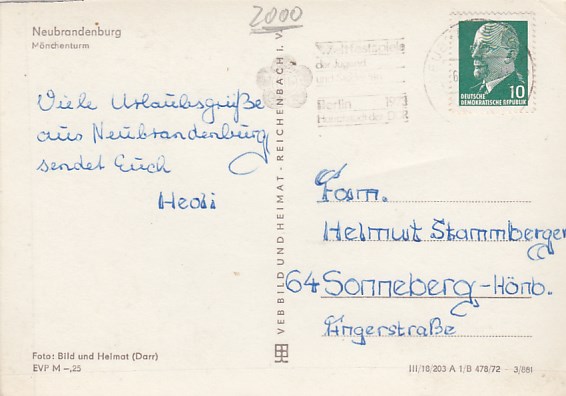 2000
Neubrandenburg
Mönchenturm
Viele Urlaubsgrüße
aus Neubrandenburg
sendet Euch
Hedi
VEB BILD UND HEIMAT · REICHENBACH I. V.
Weltfestspiele
der Jugend
Berlin 1973
Hauptstadt der DDR
10
DEUTSCHE
DEMOKRATISCHE REPUBLIK
Fam.
Helmut Stammberger
64 Sonneberg-Hönb.
Angerstraße
Foto: Bild und Heimat (Darr)
EVP M –,25
III/18/203 A 1/B 478/72 – 3/881